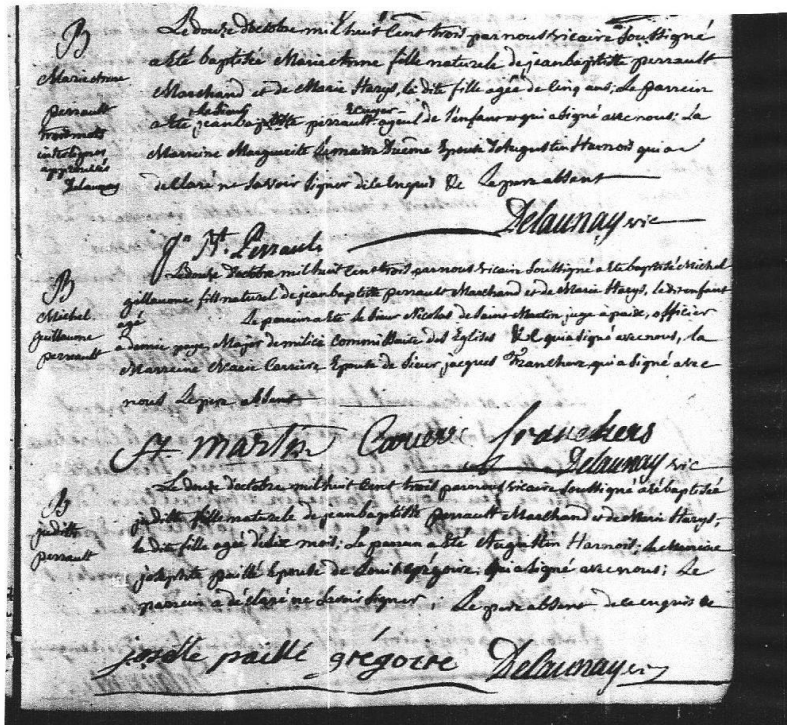 B
Marie Anne
perrault
trois mots
interlignes
approuvés
Delaunay
Le douze d'octobre mil huit Cent trois par nous vicaire Soussigné
a été baptisée Marie Anne fille naturele de jeanbaptiste perrault
Marchand et de Marie Harys, la dite fille agée de Cinq ans; Le parrein
a été jeanbaptiste perrault ayeul de l'enfant et qui a signé avec nous; La
Marreine Marguerite Lemaire Epouse d'Augustin Harnois qui a
declaré ne Savoir Signer de ce Enquis &c Le pere absent
Jn Bt. Perrault
Delaunay vic
B
Michel
guillaume
perrault
Le douze d'octobre mil huit Cent trois par nous vicaire Soussigné a été baptisé Michel
guillaume fils naturel de jeanbaptiste perrault Marchand et de Marie Harys, le dit enfant
agé Le parrein a été le Sieur Nicolas de Saint Martin juge à paix, officier
à demie paye, Major de milice Commissaire des Eglises &c qui a signé avec nous, la
Marreine Marie Carriere Epouse de Sieur jacques Franchere qui a signé avec
nous Le pere absent
St. Martin Carriere franchere
Delaunay vic
B
judith
perrault
Le douze d'octobre mil huit Cent trois par nous vicaire Soussigné a été baptisée
judith fille naturele de jeanbaptiste perrault Marchand et de Marie Harys,
la dite fille agée de dix mois; Le parrein a été Augustin Harnois; la Marreine
josephte paillé Epouse de Louis Gregoire, qui a signé avec nous; Le
parrein a déclaré ne Savoir Signer, Le pere absent de ce enquis &c
josette paillé grégoire Delaunay vic